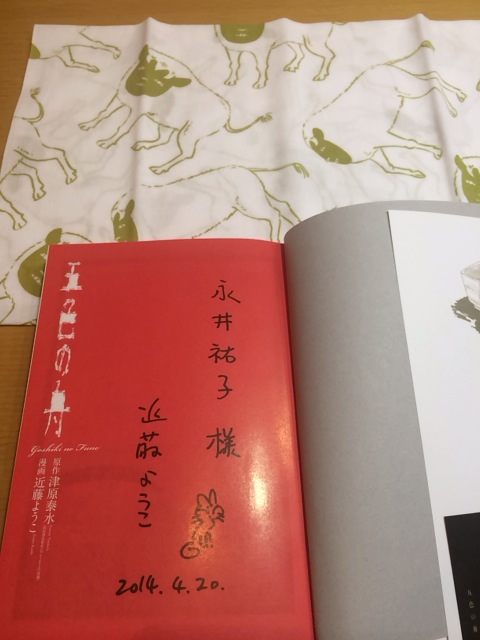 五色の舟
Goshiki no Fune
原作 津原泰水
漫画 近藤ようこ
永井祐子 様
近藤ようこ
2014. 4. 20.